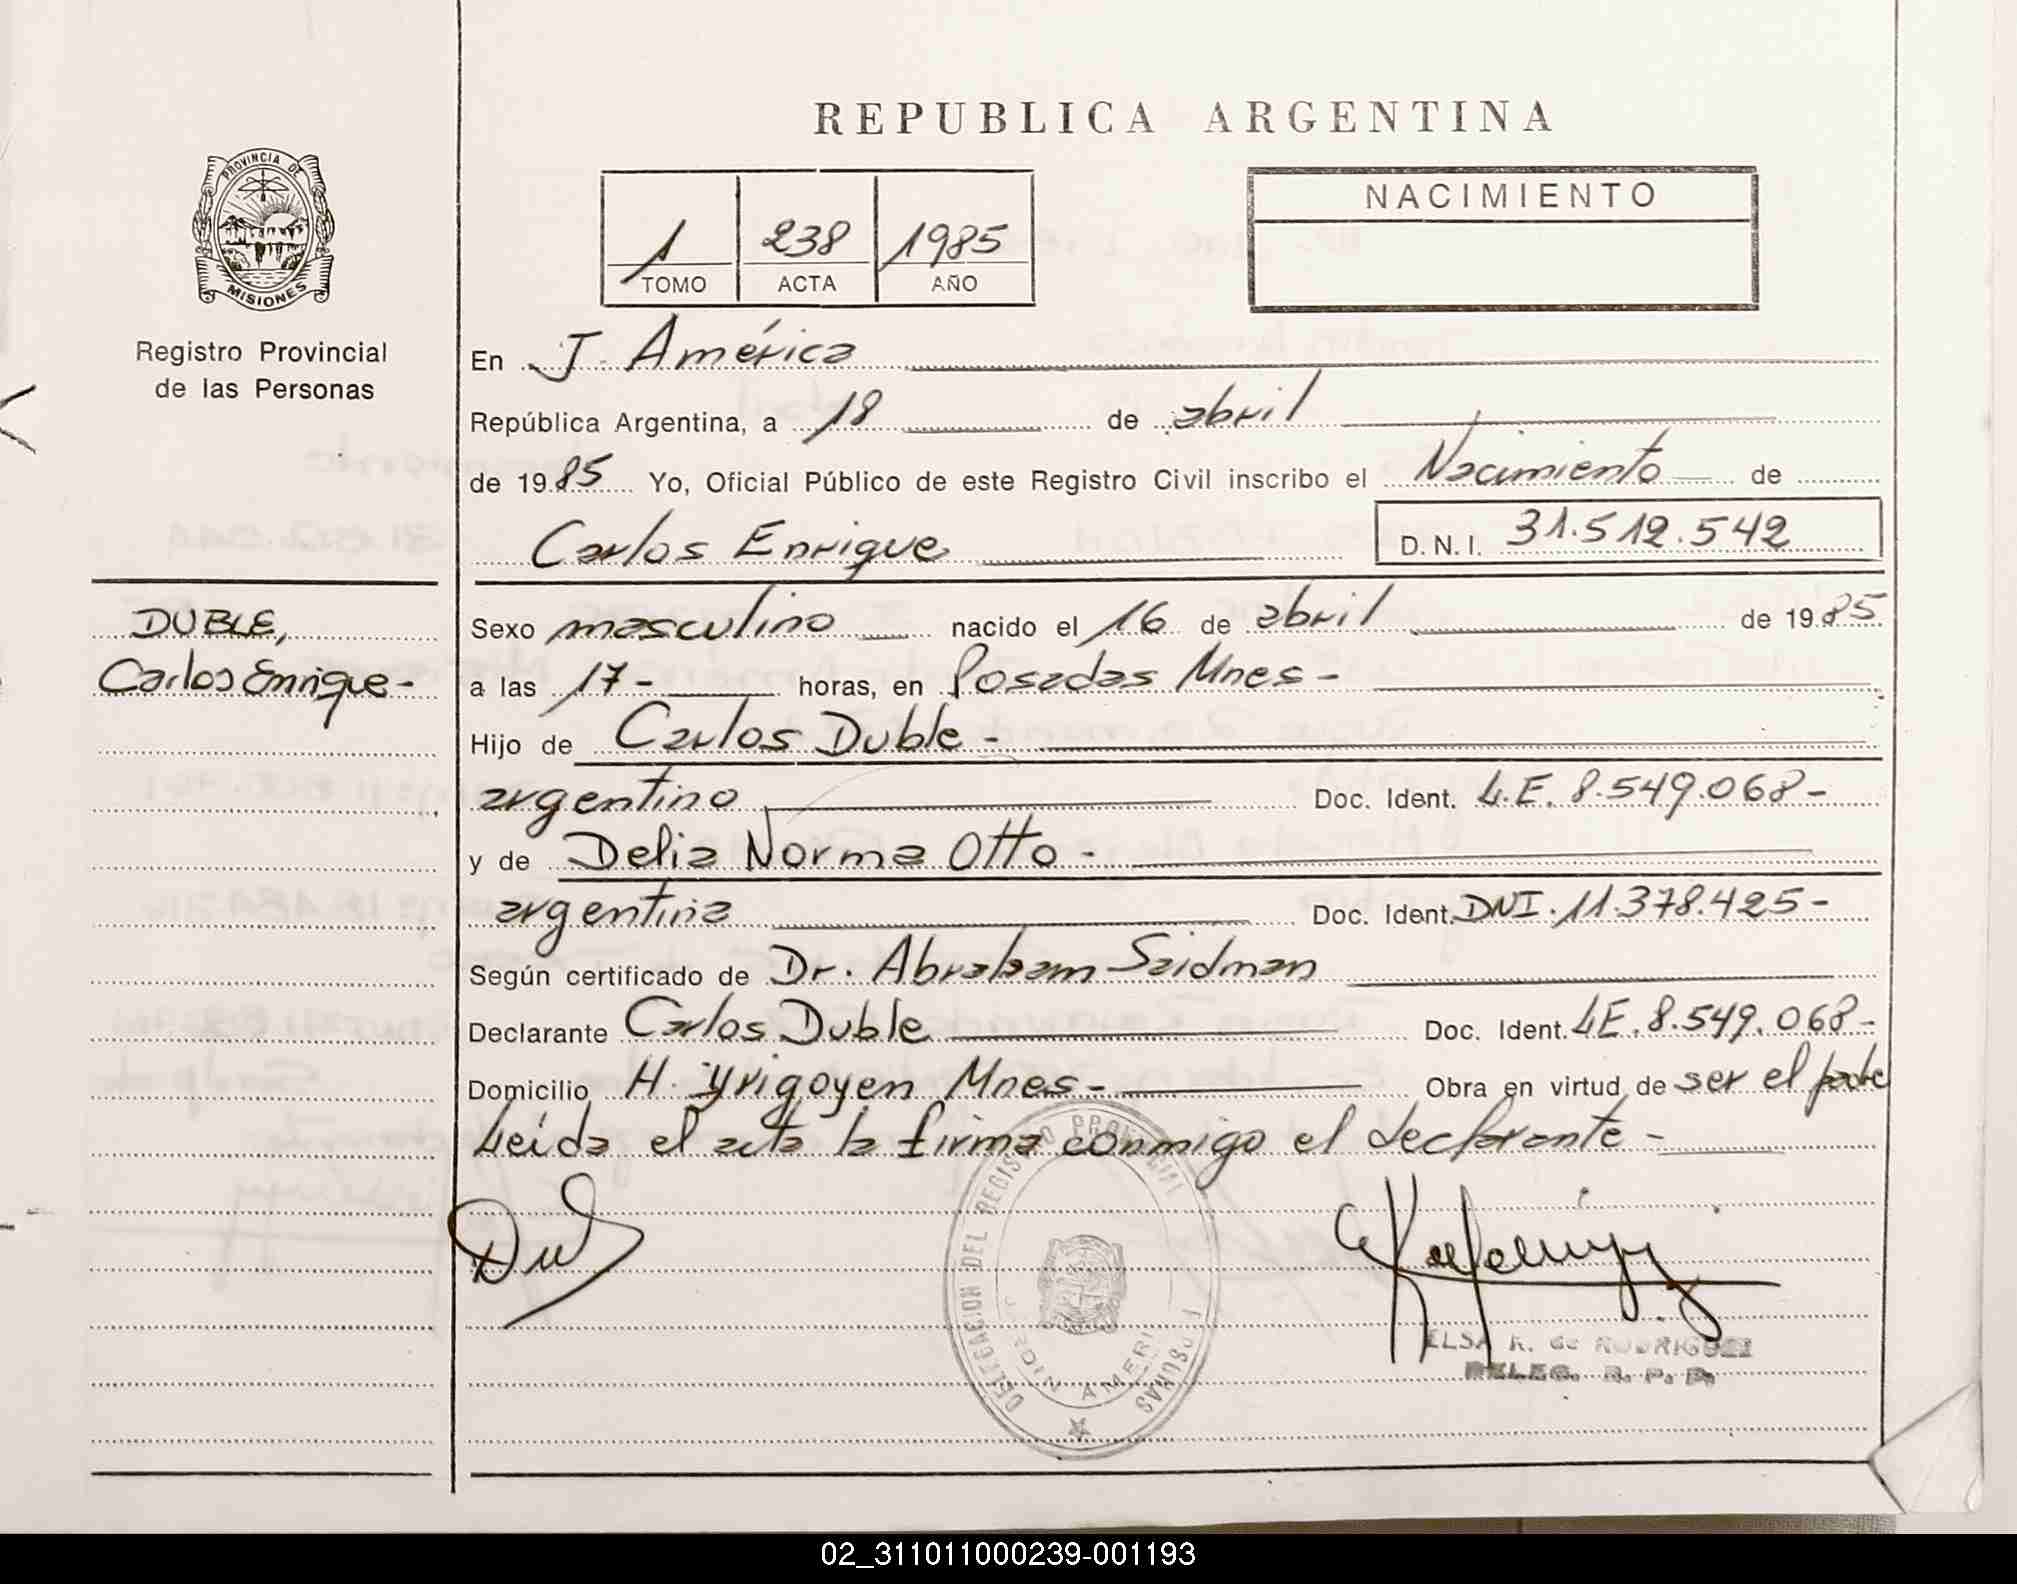 REPUBLICA ARGENTINA
PROVINCIA DE
MISIONES
Registro Provincial
de las Personas
1 238 1985
TOMO ACTA AÑO
NACIMIENTO
En J. América
República Argentina, a 18 de abril
de 1985 Yo, Oficial Público de este Registro Civil inscribo el Nacimiento de
Carlos Enrique D.N.I. 31.512.542
DUBLE,
Carlos Enrique-
Sexo masculino nacido el 16 de abril de 1985
a las 17- horas, en Posadas Mnes-
Hijo de Carlos Duble-
argentino Doc. Ident. L.E. 8.549.068-
y de Delia Norma Otto-
argentina Doc. Ident. DNI. 11.378.425-
Según certificado de Dr. Abraham Saidman
Declarante Carlos Duble Doc. Ident. LE. 8.549.068-
Domicilio H. Yrigoyen Mnes- Obra en virtud de ser el padre
Leída el acta la firma conmigo el declarante-
DELEGACION DEL REGISTRO PROVINCIAL
ELSA K. de RODRIGUEZ
DELEG. R. P. P.
02_311011000239-001193